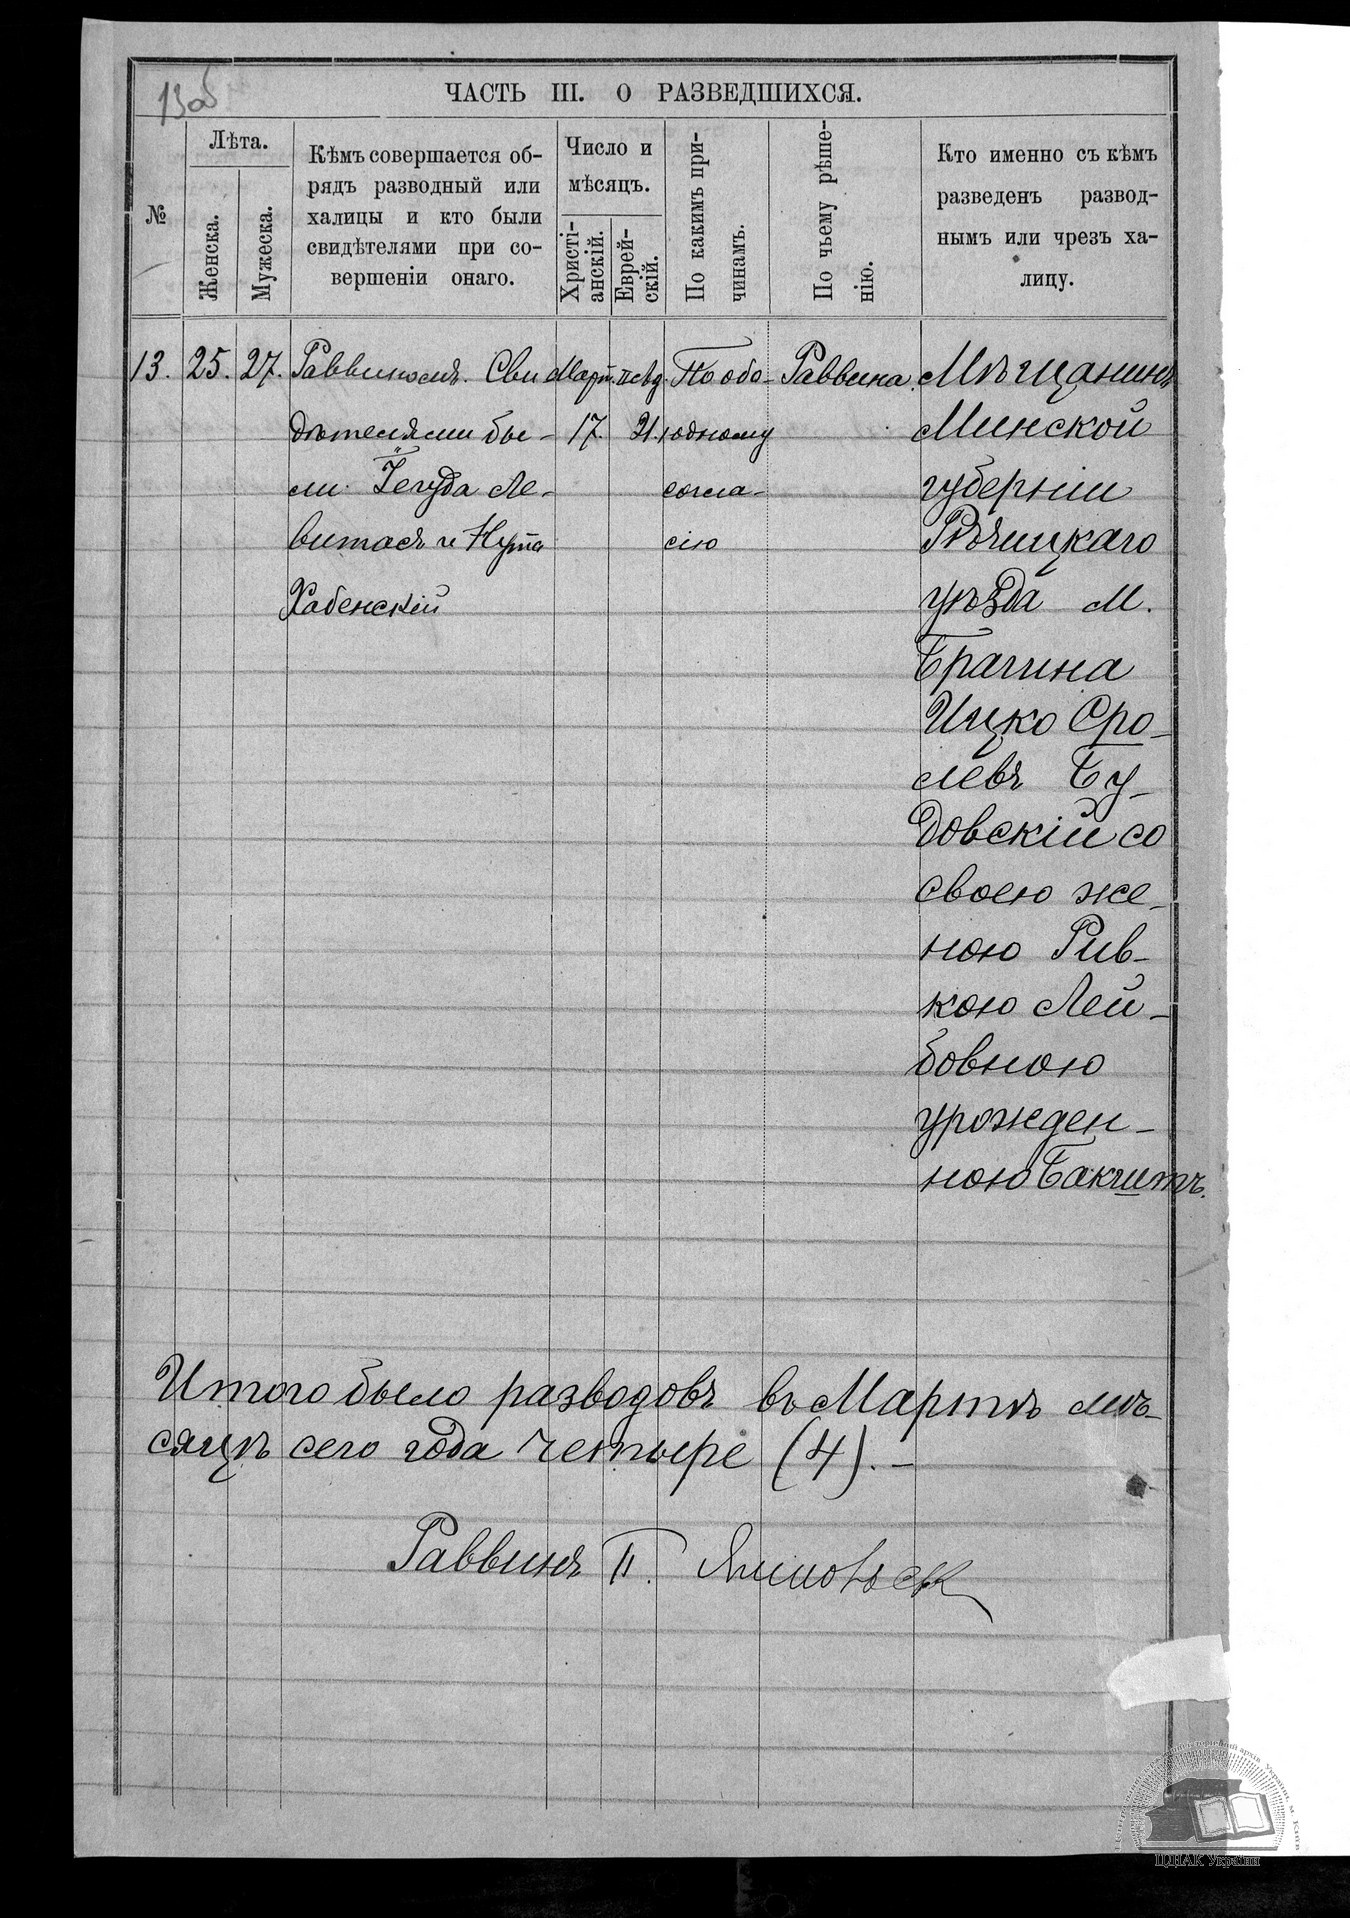 13об
ЧАСТЬ III. О РАЗВЕДШИХСЯ.
№
Лѣта.
Женска.
Мужеска.
Кѣмъ совершается об-
рядъ разводный или
халицы и кто были
свидѣтелями при со-
вершеніи онаго.
Число и
мѣсяцъ.
Христі-
анскій.
Еврей-
скій.
По какимъ при-
чинамъ.
По чьему рѣше-
нію.
Кто именно съ кѣмъ
разведенъ развод-
нымъ или чрезъ ха-
лицу.
13.
25.
27.
Раввиномъ. Сви
дѣтелями бы-
ли Іегуда Ле-
витасъ и Нута
Хабенскій
Март.
17.
21.
По обо-
юдному
согла-
сію
Раввина.
Мѣщанинъ
Минской
губерніи
Рѣчицкаго
уѣзда м.
Брагина
Ицко Сро-
левъ Бу-
довскій со
своею же-
ною Рив-
кою Лей-
бовною
урожден-
ною Бакчитъ.
Итого было разводовъ въ Мартѣ мѣ-
сяцѣ сего года четыре (4). -
Раввинъ П.
ЦДІАК України